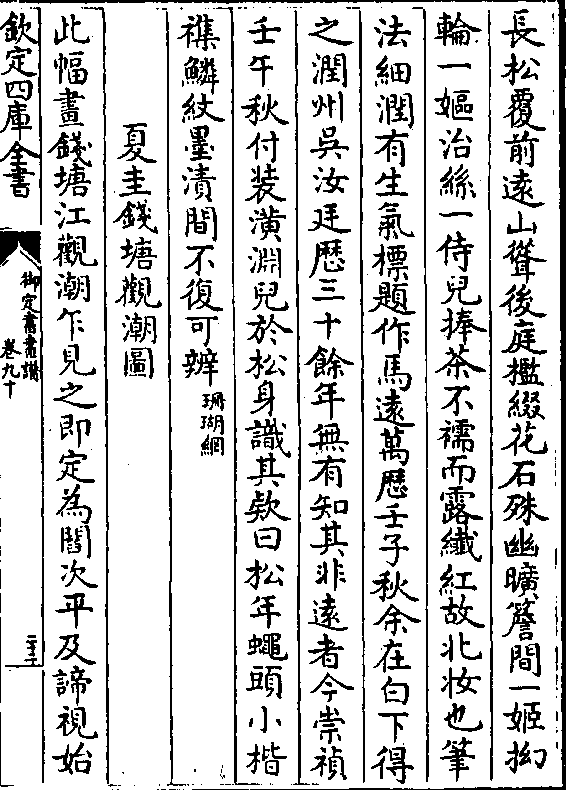 長松覆前遠山聳後庭檻綴花石殊幽曠簷間一姬拗
輪一嫗治絲一侍兒捧茶不襦而露纖紅故北妝也筆
法細潤有生氣標題作馬遠萬歷壬子秋余在白下得
之潤州吳汝廷歷三十餘年無有知其非遠者今崇禎
壬午秋付裝潢淵兒於松身識其欵曰松年蠅頭小楷
襍鱗紋墨漬間不復可辨珊瑚網
夏圭錢塘觀潮圖
此幅畫錢塘江觀潮乍見之即定為閻次平及諦視始
欽定四庫全書
御定書畫譜
卷九十